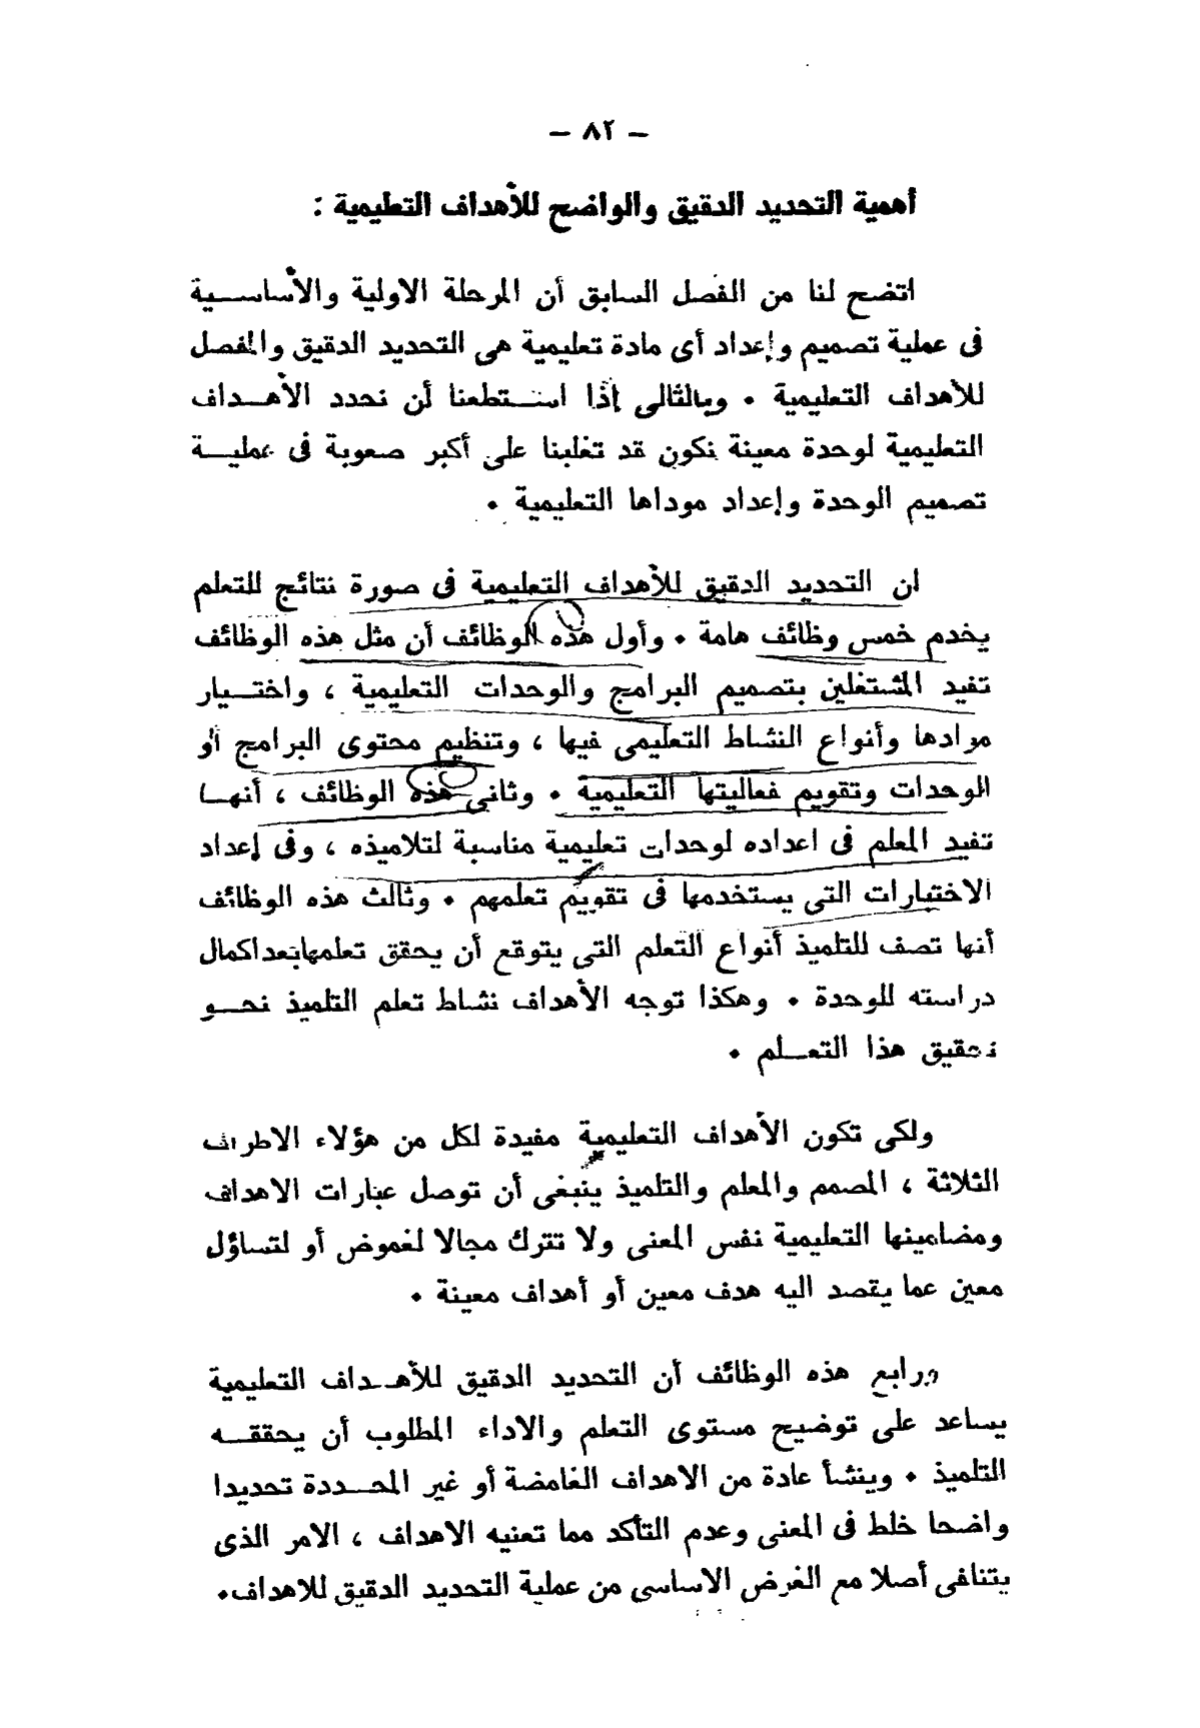 — ٨٢ —
أهمية التحديد الدقيق والواضح للأهداف التعليمية :
اتضح لنا من الفصل السابق أن المرحلة الاولية والأساسية
فى عملية تصميم وإعداد أى مادة تعليمية هى التحديد الدقيق والمفصل
للأهداف التعليمية • وبالتالى إذا استطعنا أن نحدد الأهداف
التعليمية لوحدة معينة نكون قد تغلبنا على أكبر صعوبة فى عملية
تصميم الوحدة وإعداد موداها التعليمية •
ان التحديد الدقيق للأهداف التعليمية فى صورة نتائج للتعلم
يخدم خمس وظائف هامة • وأول هذه الوظائف أن مثل هذه الوظائف
تفيد المشتغلين بتصميم البرامج والوحدات التعليمية ، واختيار
موادها وأنواع النشاط التعليمى فيها ، وتنظيم محتوى البرامج أو
الوحدات وتقويم فعاليتها التعليمية • وثانى هذه الوظائف ، أنها
تفيد المعلم فى اعداده لوحدات تعليمية مناسبة لتلاميذه ، وفى إعداد
الاختبارات التى يستخدمها فى تقويم تعلمهم • وثالث هذه الوظائف
أنها تصف للتلميذ أنواع التعلم التى يتوقع أن يحقق تعلمها بعد اكمال
دراسته للوحدة • وهكذا توجه الأهداف نشاط تعلم التلميذ نحو
تحقيق هذا التعلم •
ولكى تكون الأهداف التعليمية مفيدة لكل من هؤلاء الاطراف
الثلاثة ، المصمم والمعلم والتلميذ ينبغى أن توصل عبارات الاهداف
ومضامينها التعليمية نفس المعنى ولا تترك مجالا لغموض أو لتساؤل
معين عما يقصد اليه هدف معين أو أهداف معينة •
ورابع هذه الوظائف أن التحديد الدقيق للأهداف التعليمية
يساعد على توضيح مستوى التعلم والاداء المطلوب أن يحققه
التلميذ • وينشأ عادة من الاهداف الغامضة أو غير المحددة تحديدا
واضحا خلط فى المعنى وعدم التأكد مما تعنيه الاهداف ، الامر الذى
يتنافى أصلا مع الغرض الاساسى من عملية التحديد الدقيق للاهداف•